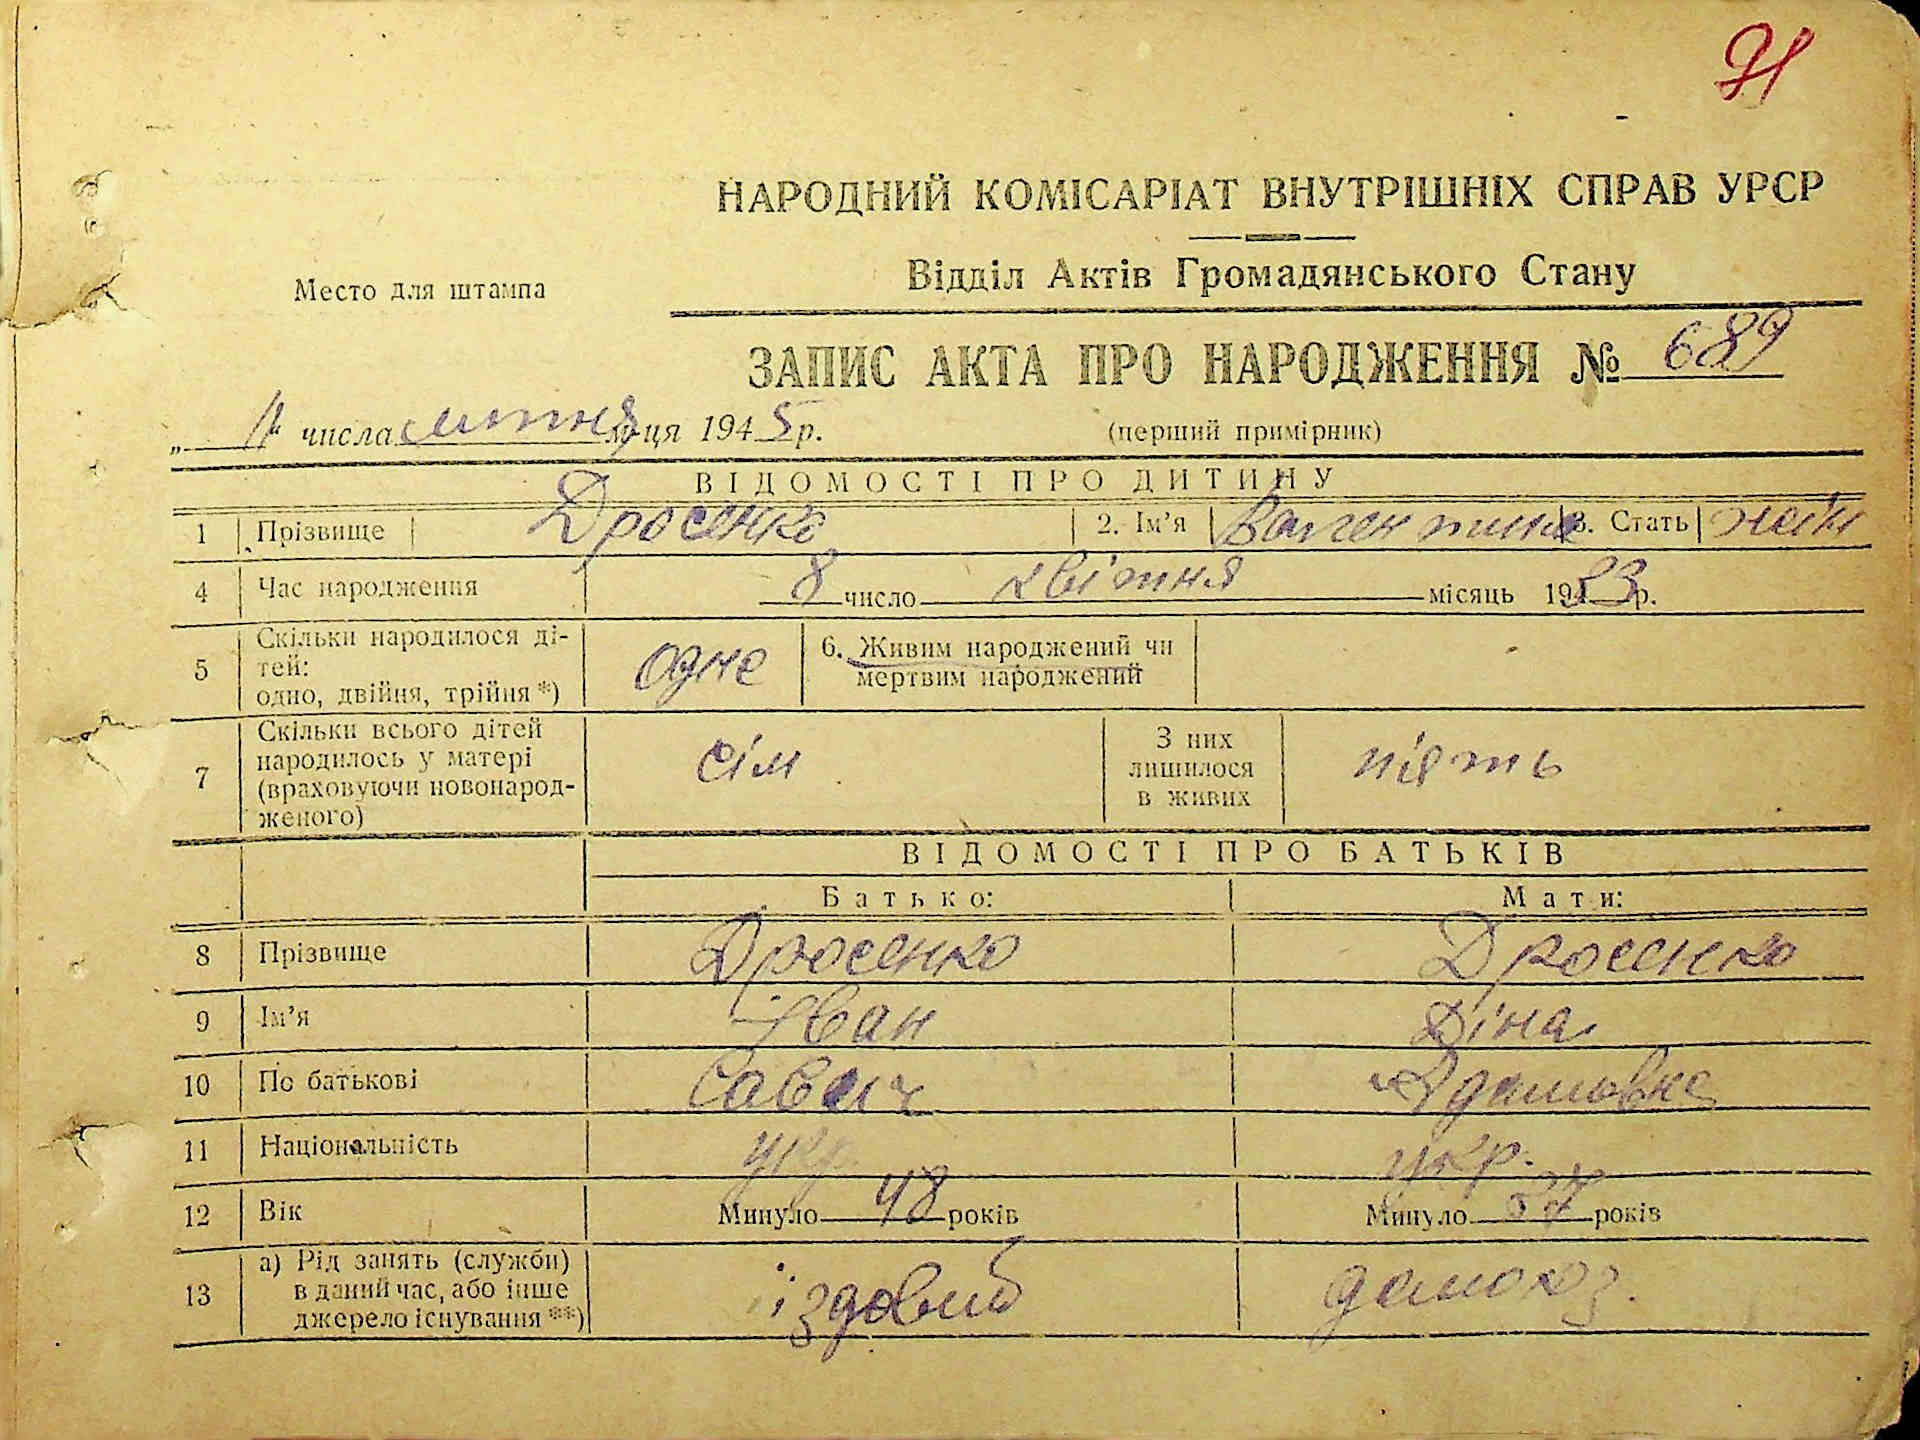 91
НАРОДНИЙ КОМІСАРІАТ ВНУТРІШНІХ СПРАВ УРСР
Место для штампа
Відділ Актів Громадянського Стану
ЗАПИС АКТА ПРО НАРОДЖЕННЯ № 689
„ 11 “ числа липня м-ця 1945 р. (перший примірник)
ВІДОМОСТІ ПРО ДИТИНУ
1 Прізвище Дросенко 2. Ім’я Валентина 3. Стать жін
4 Час народження 8 число квітня місяць 1933 р.
5 Скільки народилося ді-
тей:
одно, двійня, трійня *) одне 6. Живим народжений чи
мертвим народжений
7 Скільки всього дітей
народилось у матері
(враховуючи новонарод-
женого) сім З них
лишилося
в живих пять
ВІДОМОСТІ ПРО БАТЬКІВ
Батько: Мати:
8 Прізвище Дросенко Дросенко
9 Ім’я Іван Діна
10 По батькові Савич Адамовна
11 Національність укр укр.
12 Вік Минуло 48 років Минуло 37 років
13 а) Рід занять (служби)
в даний час, або інше
джерело існування **) їздовий домохз.